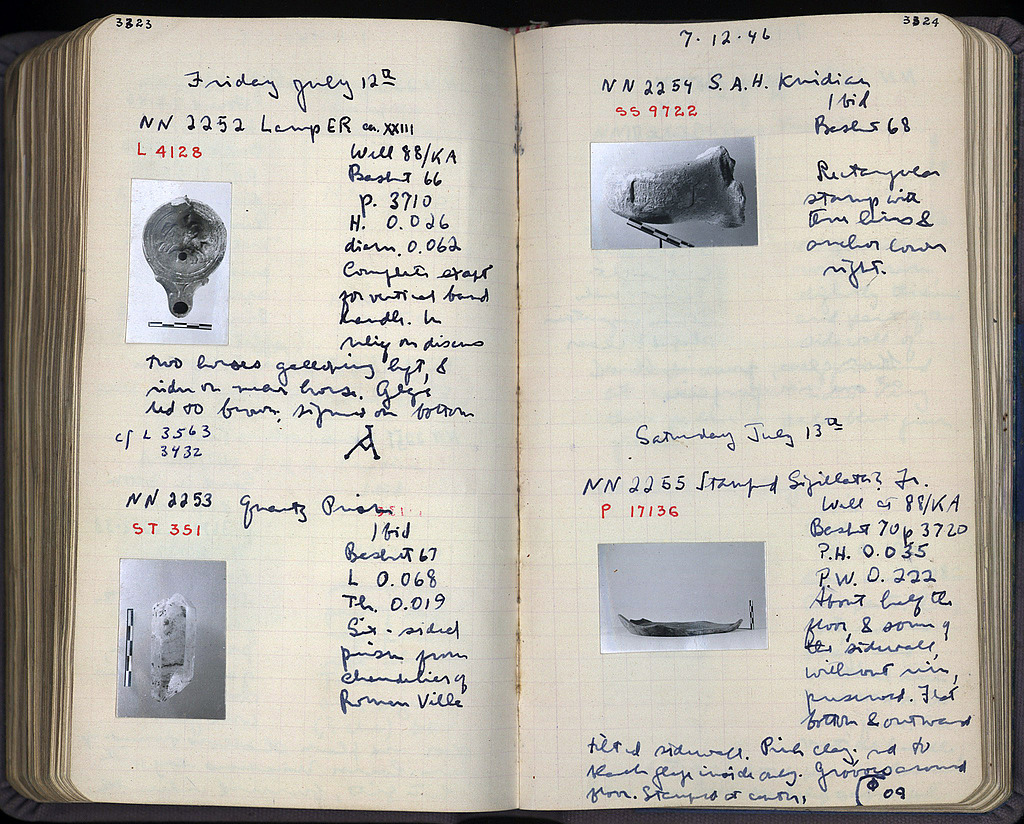 3323
Friday July 12th
NN 2252 Lamp ER ca. XXIII
L 4128
Well 88/KA
Basket 66
p. 3710
H. 0.026
diam. 0.062
Complete except
for vertical band
handle. In
relief on discus
two horses galloping left, &
rider on near horse. Glaze
red to brown, signed on bottom
cf L 3563
3432
A
NN 2253 Quartz Prism
ST 351
Ibid
Basket 67
L 0.068
Th. 0.019
Six-sided
prism from
chandelier of
Roman Villa
3324
7.12.46
NN 2254 S.A.H. Knidian
SS 9722
Ibid
Basket 68
Rectangular
stamp with
three lines &
anchor lower
right.
Saturday July 13th
NN 2255 Stamped Sigillata? Fr.
P 17136
Well at 88/KA
Basket 70 p 3720
P.H. 0.035
P.W. 0.222
About half the
floor, & some of
the sidewall,
without rim,
preserved. Flat
bottom & outward
tilted sidewall. Pink clay. red to
black glaze inside only. Grooves around
floor. Stamped at center,
09